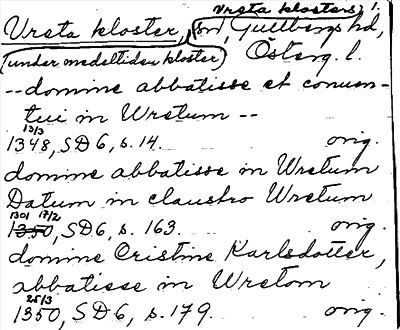 Vreta klosters, 1.
Vreta kloster, sn, Gullbergs hd,
(under medeltiden kloster) Österg. l.
-- domine abbatisse et conuen-
tui in Wretum --
13/3
1348, SD6, s. 14. orig.
domine abbatisse in Wretum
Datum in claustro Wretum
1301 17/2
1350, SD6, s. 163. orig.
domine Cristine Karlsdotter,
abbatisse in Wretom
25/3
1350, SD6, s. 179. orig.